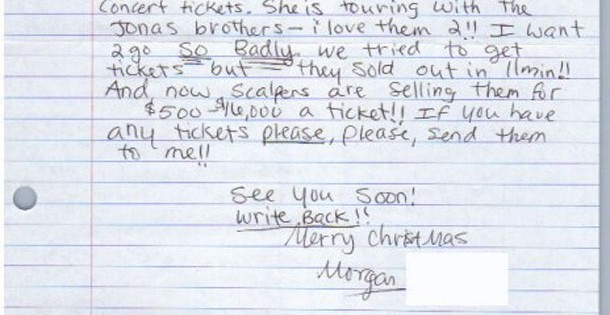 Concert tickets. She is touring with the
Jonas brothers - i love them 2!! I want
2 go So Badly. we tried to get
tickets but they sold out in 11min!!
And now scalpers are selling them for
$500 - $16,000 a ticket!! If you have
any tickets please, please, send them
to me!!
See you soon!
Write Back!!
Merry Christmas
Morgan